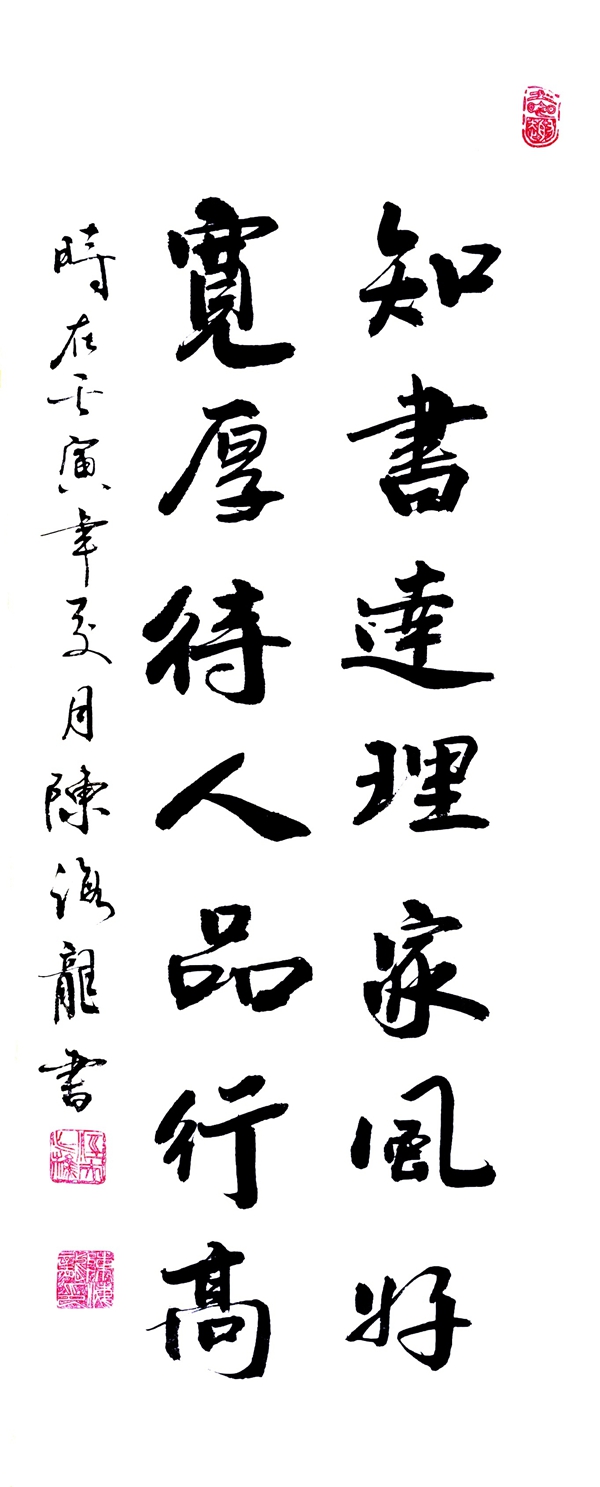 知書達理家風好
寬厚待人品行高
時在壬寅年夏月陳海龍書